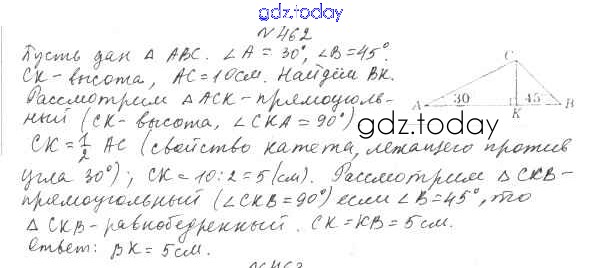 gdz.today
№462
Пусть дан △ ABC. ∠A = 30°, ∠B = 45°.
CK - высота, AC = 10см. Найдём BK.
Рассмотрим △ACK - прямоуголь-
ный (CK - высота, ∠CKA = 90°)
C
A 30 45 B
K
gdz.today
CK = 1/2 AC (свойство катета, лежащего против
угла 30°); CK = 10:2 = 5(см). Рассмотрим △ CKB -
прямоугольный (∠CKB = 90°) если ∠B = 45°, то
△ CKB - равнобедренный. CK = KB = 5см.
Ответ: BK = 5см.
№463